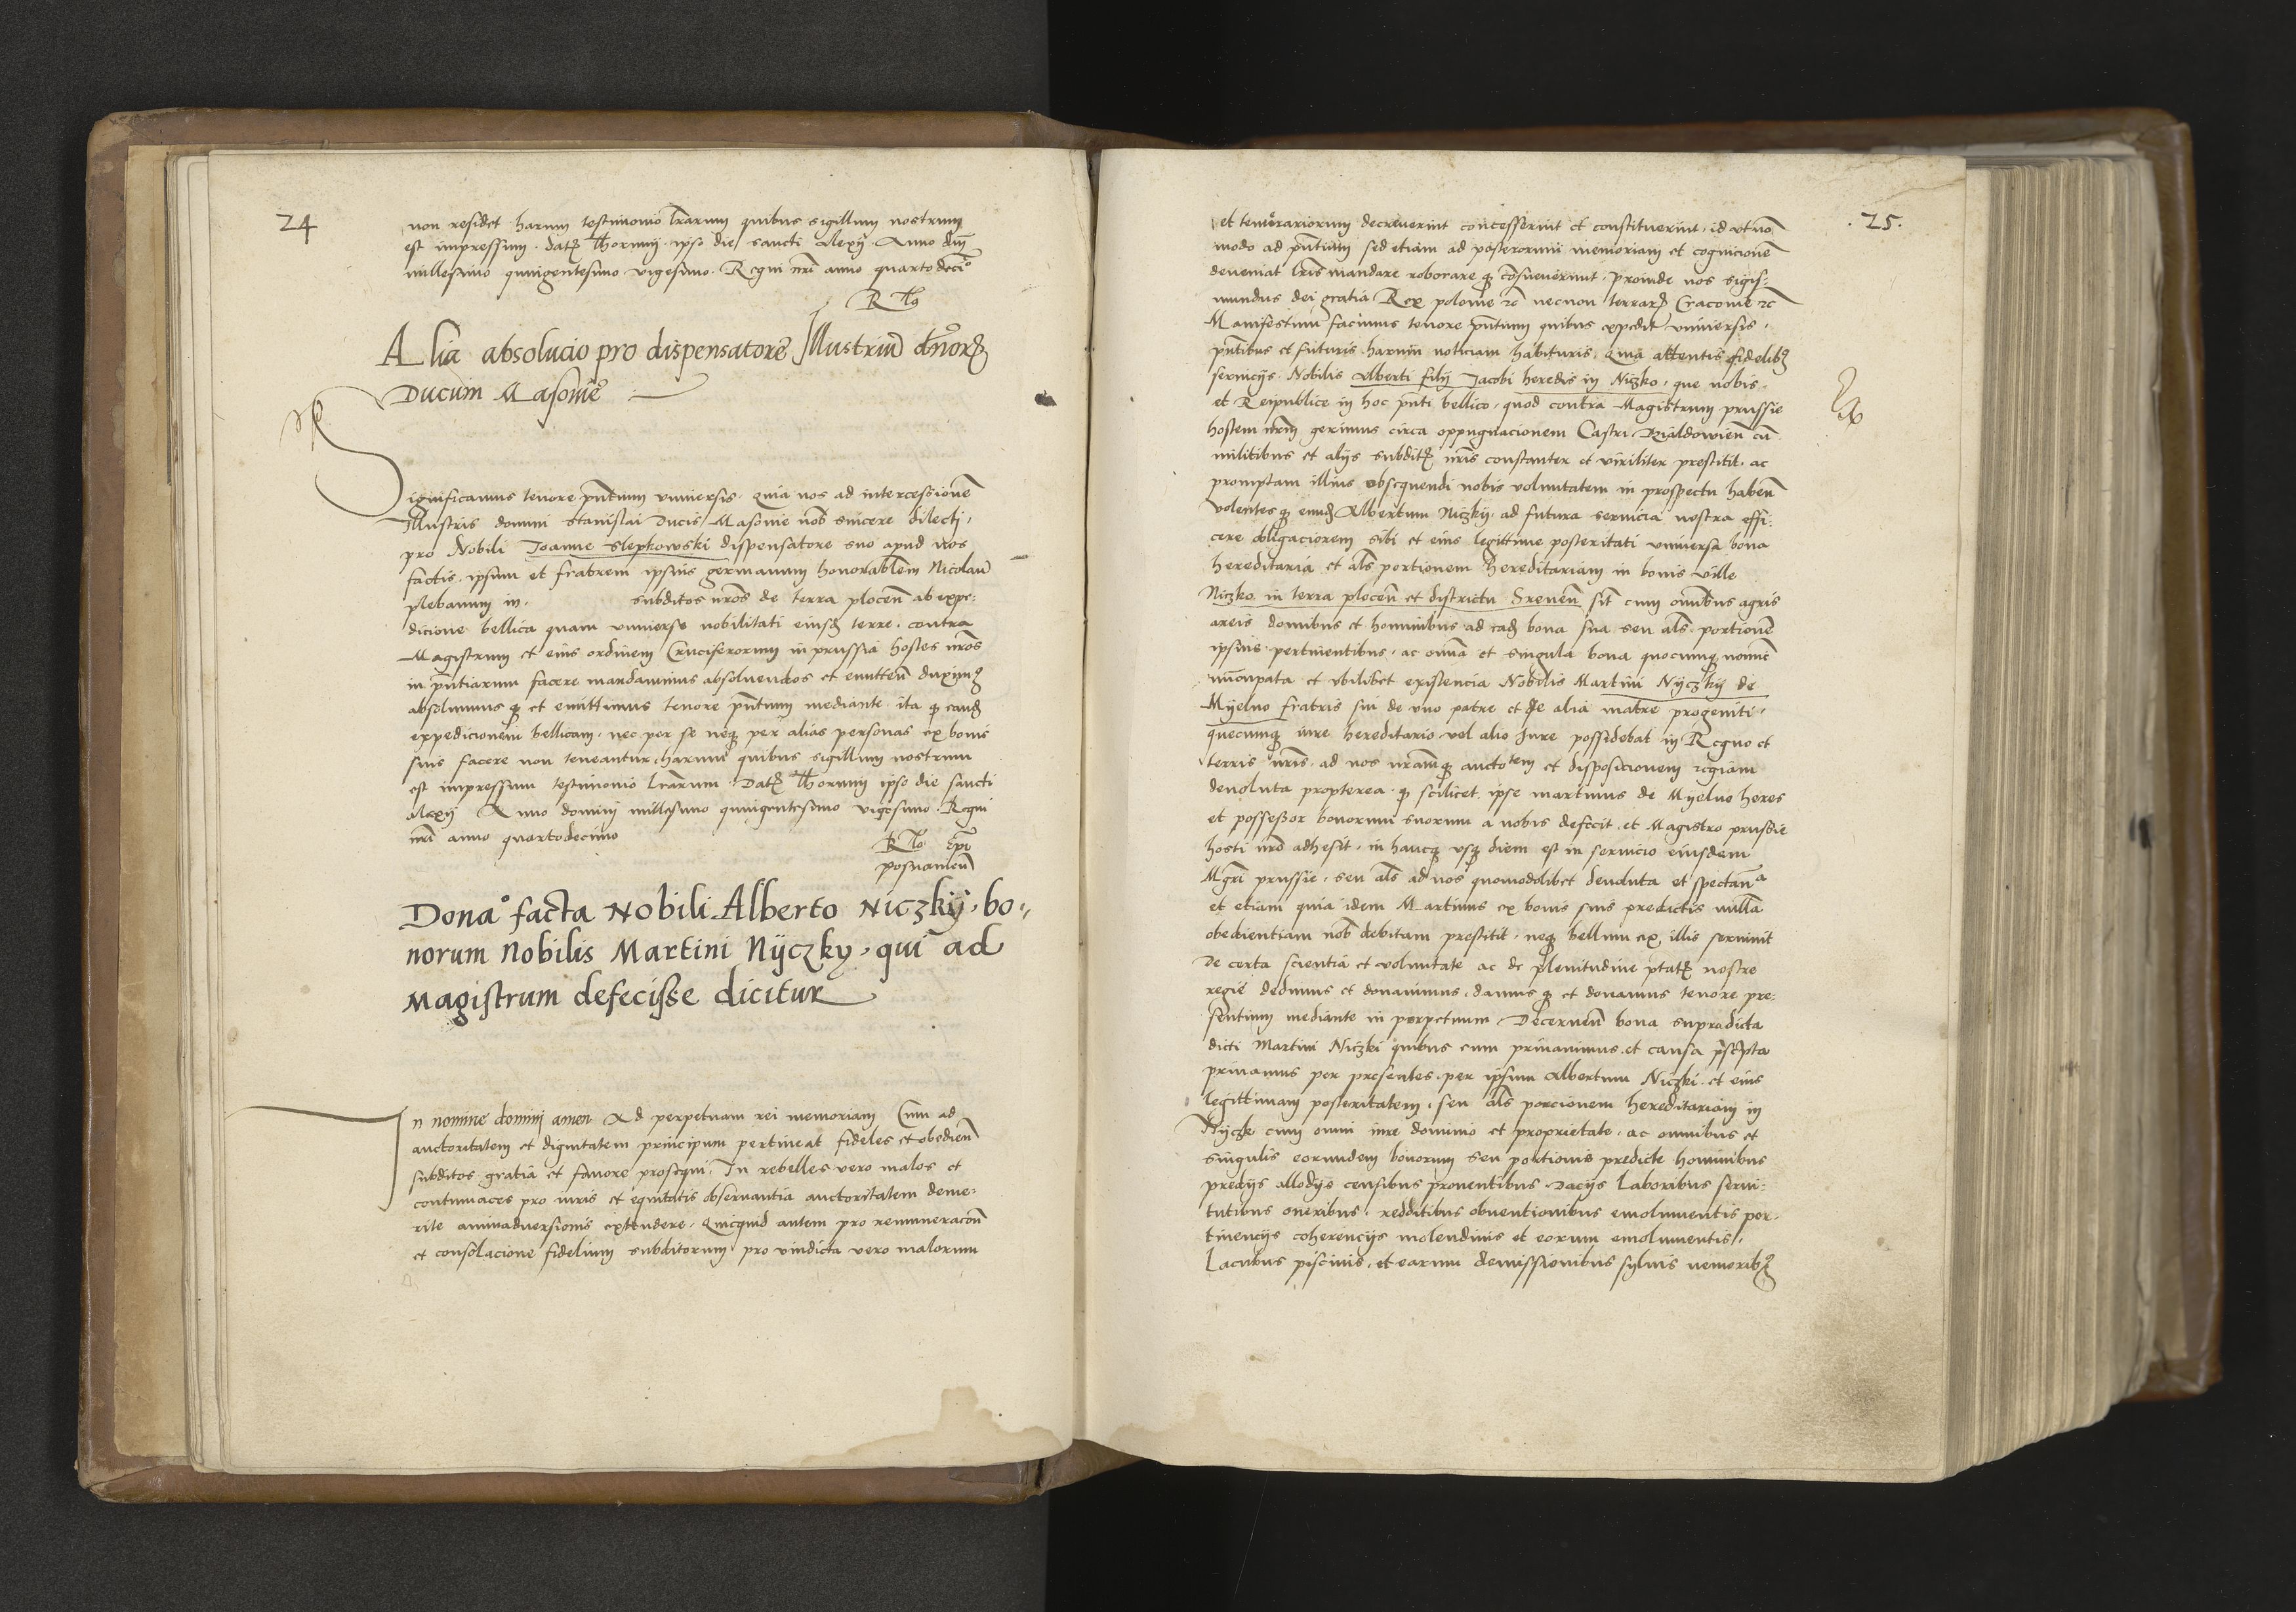 24
non residet harum testimonio lrarum quibus sigillum nostrum
est impressum. Datꝫ Thorunij ipso die sancti Alexij Anno dnj
millesimo quingentesimo vigesimo. Regni nri anno quarto decio
Alia absolucio pro dispensatore Illustriū dnorꝫ
Ducum Masovie
Significamus tenore pntium vniversis. quia nos ad intercessionē
Illustris domini Stanislai Ducis Masovie nob sincere dilecti,
pro Nobili Joanne Slepkowski dispensatore suo apud nos
factis, ipsum et fratrem ipsius germanum honorablem Nicolaū
plebanum in. subditos nros de terra plocen ab expe:
dicione bellica quam vniverse nobilitati eiusdꝫ terre. contra
Magistrum et eius ordinem Cruciferorum in prussia hostes nros
in pntiarum facere mandavimus absolvendos et emitten duximꝫ
absolvimusqꝫ et emittimus tenore pntium mediante. ita qꝫ eandꝫ
expedicionem bellicam, nec per se neqꝫ per alias personas ex bonis
suis facere non teneantur, harum quibus sigillum nostrum
est impressum testimonio lrarum. Datꝫ Thorunij ipso die sancti
Alexij Anno domini millesimo quingentesimo vigesimo. Regni
nri anno quartodecimo
Epi
posnanien
Dona° facta Nobili Alberto Niczkij, bo:,
norum Nobilis Martini Nijczky, qui ad
Magistrum defecisse dicitur
In nomine domini amen Ad perpetuam rei memoriam Cum ad
auctoritatem et dignitatem principum pertineat fideles et obedien
subditos gratia et favore prosequi, In rebelles vero malos et
contumaces pro iuris et equitatis observantia auctoritatem deme:
rite animadversionis extendere. Quicquid autem pro remuneracōn
et consolacione fidelium subditorum, pro vindicta vero malorum
.25.
et temerariorum decreverint concesserint et constituerint, id vt nō
modo ad pntium sed etiam ad posterorum memoriam et cognicionē
deveniat lris mandare roborareqꝫ cōsueverunt. Proinde nos Sigis:
mundus dei gratia Rex polonie ꝛc necnon terrarꝫ Cracovie ꝛc
Manifestum facimus tenore pntium quibus expedit vniversis,
pntibus et futuris harum noticiam habituris. Quia attentis fidelibꝫ
servicijs Nobilis Alberti filij Jacobi heredis in Niczko, que nobis
et Reipublice in hoc pnti bellico, quod contra Magistrum prussie
hostem nrm gerimus circa oppugnacionem Castri Dzialdowien cū
militibus et alijs subditꝫ nris constanter et viriliter prestitit, ac
promptam illius obsequendi nobis voluntatem in prospectu haben
Volentesqꝫ eundꝫ Albertum Niczkij ad futura servicia nostra effi:
cere obligaciorem sibi et eius legittime posteritati vniversa bona
hereditaria et als portionem hereditariam in bonis ville
Niczko in terra plocen et districtu Srenen sit cum omibus agris
areis domibus et hominibus ad eadꝫ bona sua seu als portionē
ipsius pertinentibus, ac omnia et singula bona quocumqꝫ nomine
nuncupata et vbilibet existencia Nobilis Martini Nyczkij de
Myelno fratris sui de vno patre et de alia matre progeniti,
quecumqꝫ iure hereditario vel alio Jure possidebat in Regno et
terris nris, ad nos nramqꝫ auctotem et disposicionem regiam
devoluta propterea qꝫ scilicet ipse martinus de Myelno heres
et possessor bonorum suorum a nobis defecit, et Magistro prussie
hosti nro adhesit, in hancqꝫ vsqꝫ diem est in servicio eiusdem
Mgri prussie, seu als ad nos quomodolibet devoluta et spectan
et etiam quia idem Martinus ex bonis suis predictis nullā
obedientiam nob debitam prestitit, neqꝫ bellum ex illis servivit
De certa scientia et voluntate ac de plenitudine ptatꝫ nostre
regie dedimus et donavimus, damusqꝫ et donamus tenore pre:
sentium mediante in perpetuum. Decernen bona supradicta
dicti Martini Niczki quibus eum privavimus, et causa prescripta
privamus per presentes, per ipsum Albertum Niczki et eius
legittimam posteritatem, seu als porcionem hereditariam in
Nijczk cum omni iure dominio et proprietate, ac omnibus et
singulis eorundem bonorum seu portionis predicte hominibus
predijs allodijs censibus proventibus dacijs laboribus servi:
tutibus oneribus, redditibus obventionibus emolumentis per:
tinencijs coherencijs molendinis et eorum emolumentis,
Lacubus piscinis, et earum demissionibus sylvis nemoribꝫ